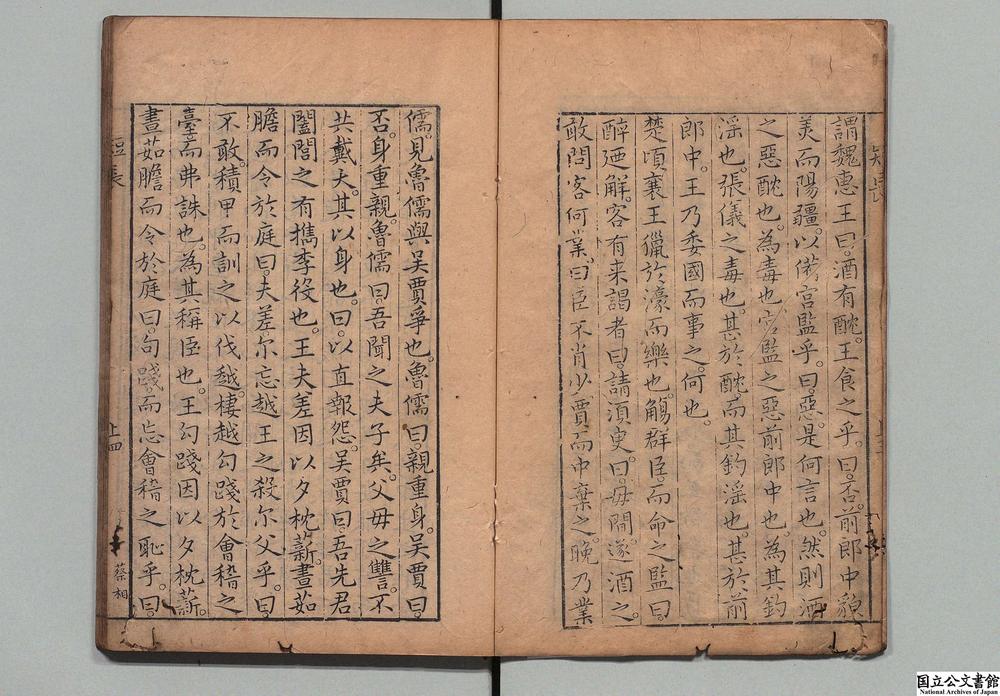 謂魏惠王曰。酒有酖。王食之乎。曰。否。前郎中貌
美而陽疆。以備宮監乎。曰。惡。是何言也。然則酒
之惡酖也。為毒也。宮監之惡前郎中也。為其釣
淫也。張儀之毒也。甚於酖。而其釣淫也。甚於前
郎中。王乃委國而事之。何也。
楚頃襄王獵於濠而樂也。觴群臣。而命之監曰。
醉迺解。客有来謁者曰。請湏臾曰。毋閒。遂酒之。
敢問客何業。曰。臣不肖。少賈而中棄之。晚乃業
儒。見魯儒與吴賈爭也。魯儒曰。親重身。吴賈曰。
否。身重親。魯儒曰。吾聞之夫子矣。父母之讐。不
共戴天。其以身也。曰。以直報怨。吴賈曰。吾先君
闔閭之有擕李役也。王夫差因以夕枕薪。晝茹
膽而令於庭曰。夫差。尔忘越王之殺尔父乎。曰。
不敢。積甲而訓之以伐越。棲越勾踐於會稽之
臺而弗誅也。為其稱臣也。王勾踐因以夕枕薪。
晝茹膽而令於庭曰。句踐。而忘會稽之恥乎。曰。
短長
上四
蔡相
国立公文書館
National Archives of Japan